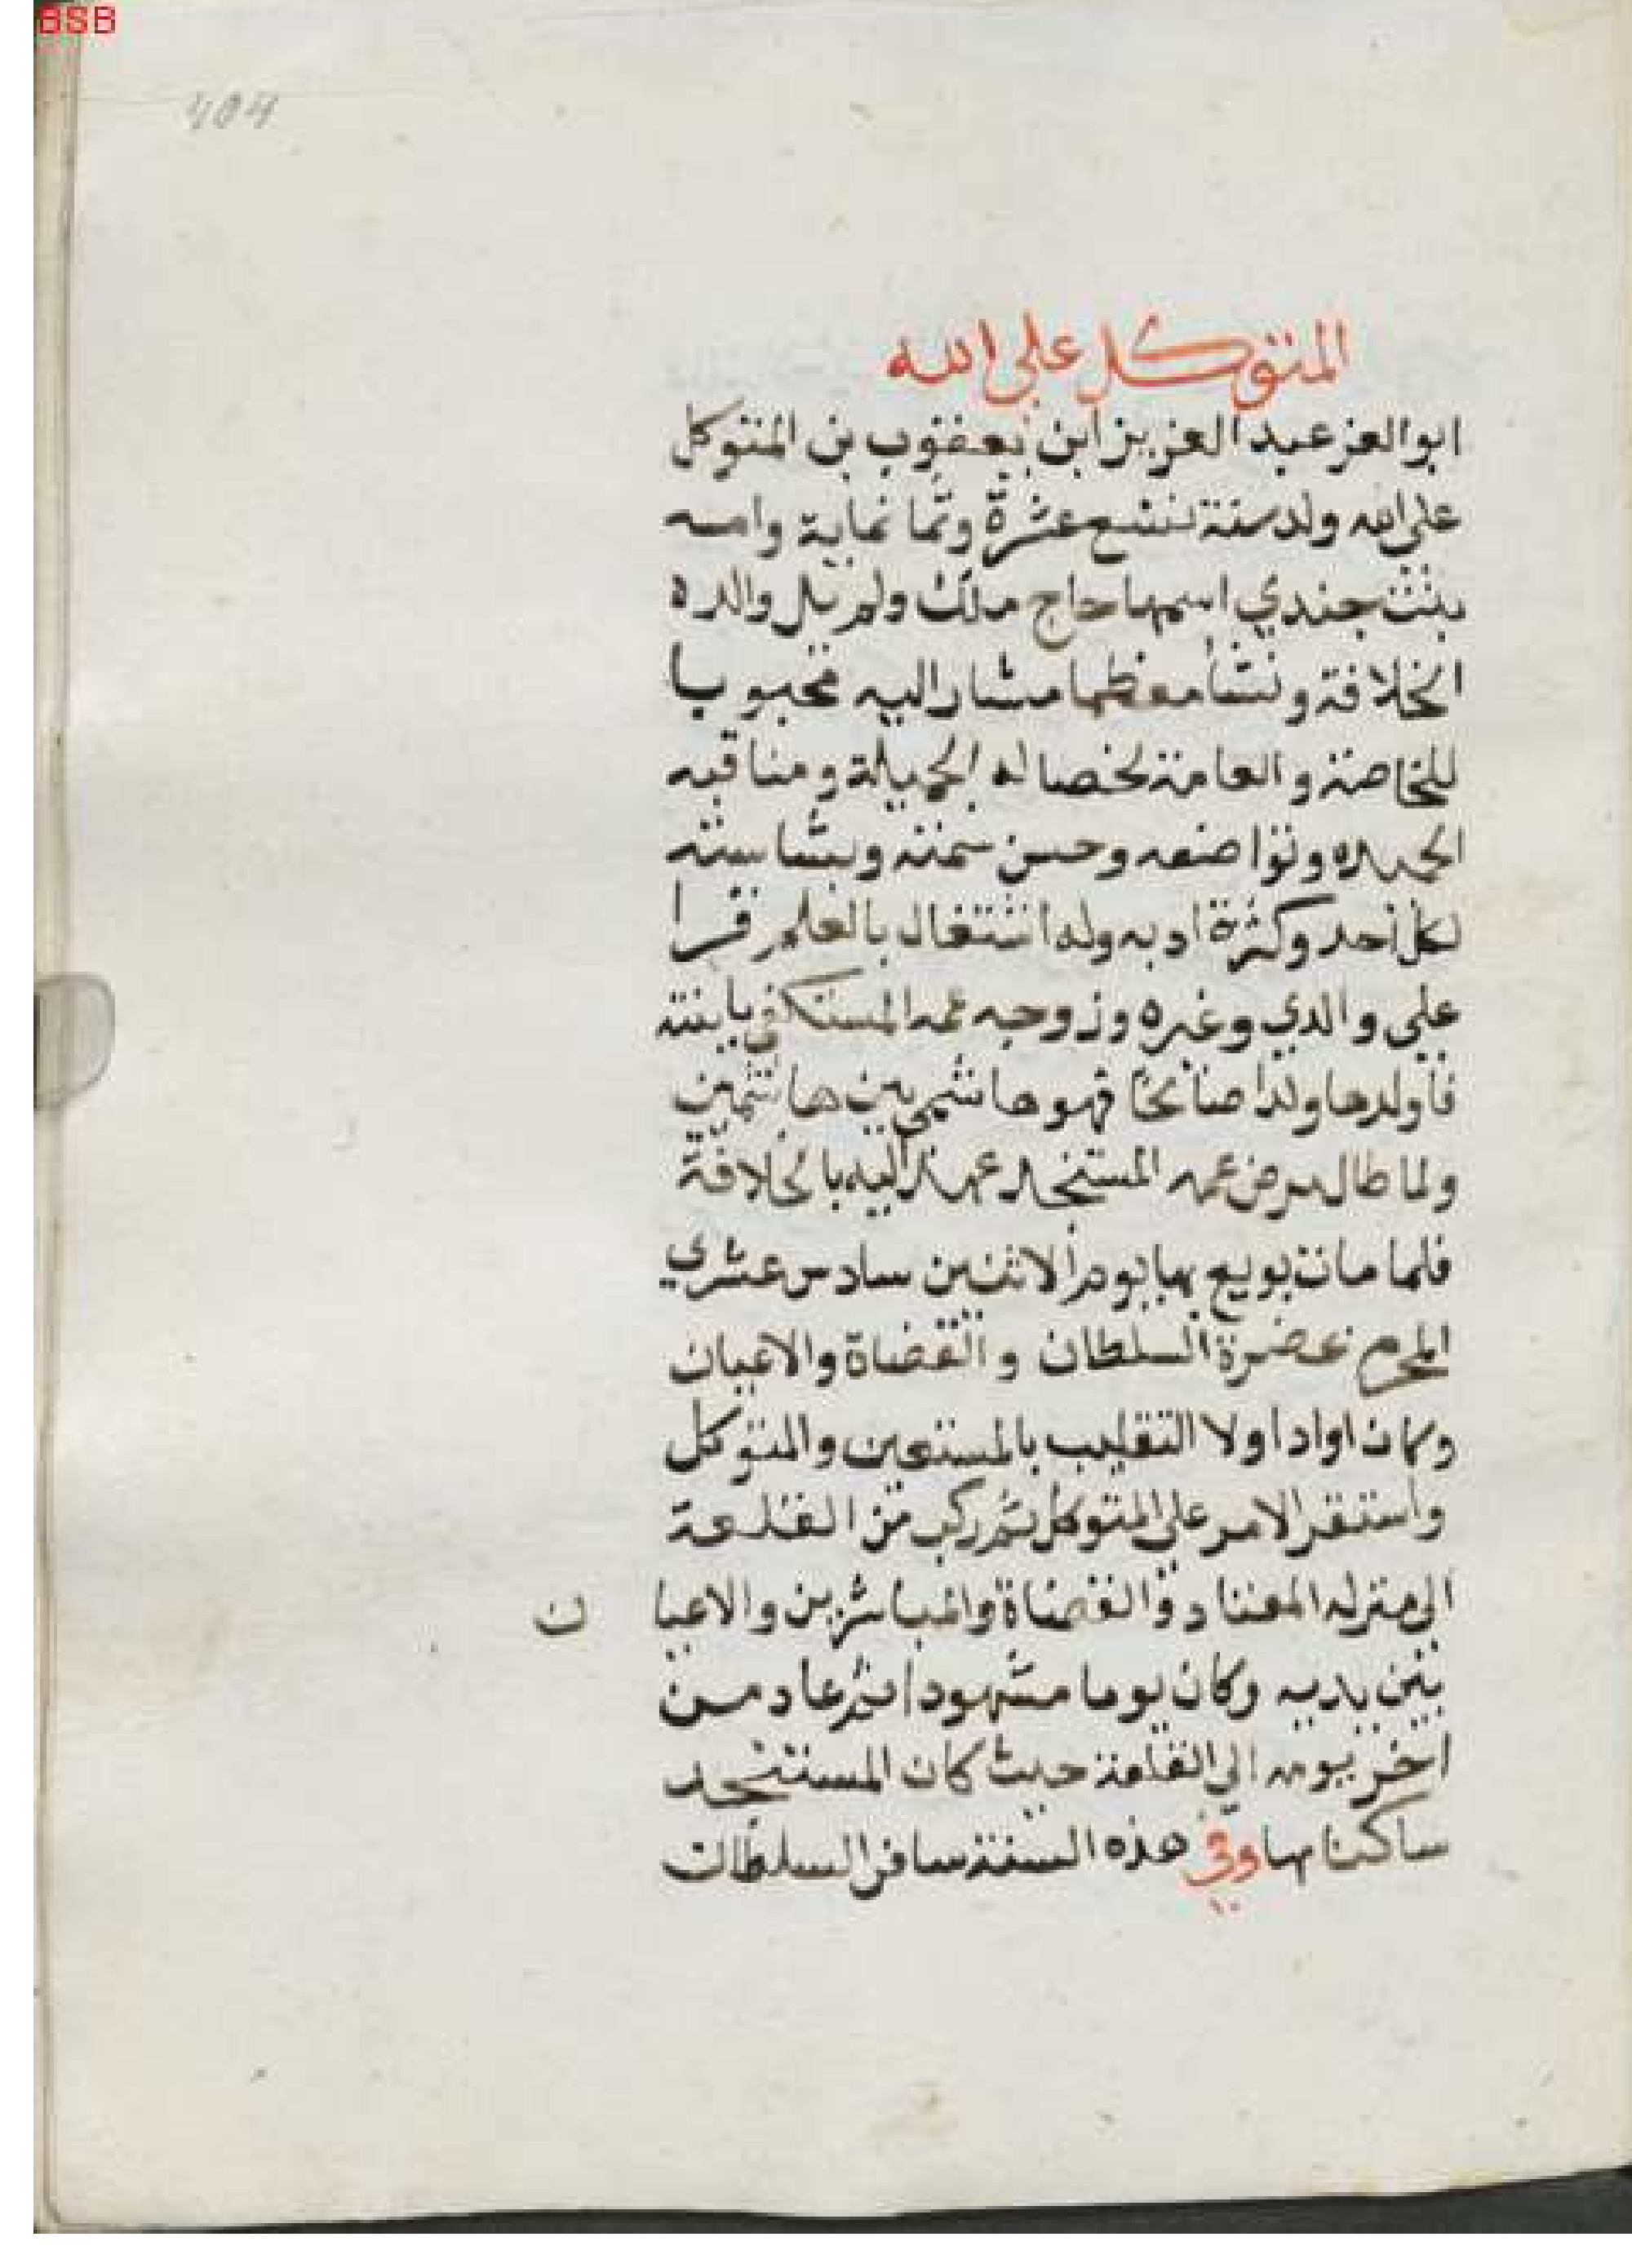 BSB
404
المتوكل على الله
ابو العز عبد العزيز ابن يعقوب بن المتوكل
على الله ولد سنة تسع عشرة وثما نماية وامه
بنت جندي اسمها حاج ملك ولم يل والده
الخلافة ونشأ معظما مشارا اليه محبوبا
للخاصة والعامة لخصاله الجميلة ومناقبه
الحميده وتواضعه وحسن سمته وبشاسته
لكل احد وكثرة ادبه وله اشتغال بالعلم قرا
على والدي وغيره وزوجه عمه المستكفي بابنته
فاولدها ولدا صالحا فهو هاشمي بين هاشميين
ولما طال مرض عمه المستنجد عهد اليه بالخلافة
فلما مات بويع بها يوم الاثنين سادس عشري
المحرم بحضرة السلطان والقضاة والاعيان
وكان اواد اولا التقليب بالمستعين والمتوكل
واستقر الامر على المتوكل ثم ركب من القلعة
الى منزله المعتاد والقضاة والمباشرين والاعيا ن
بين يديه وكان يوما مشهودا ثم عاد من
اخر يومه الى القلعة حيث كان المستنجد
ساكنا بها وفي هذه السنة سافر السلطان